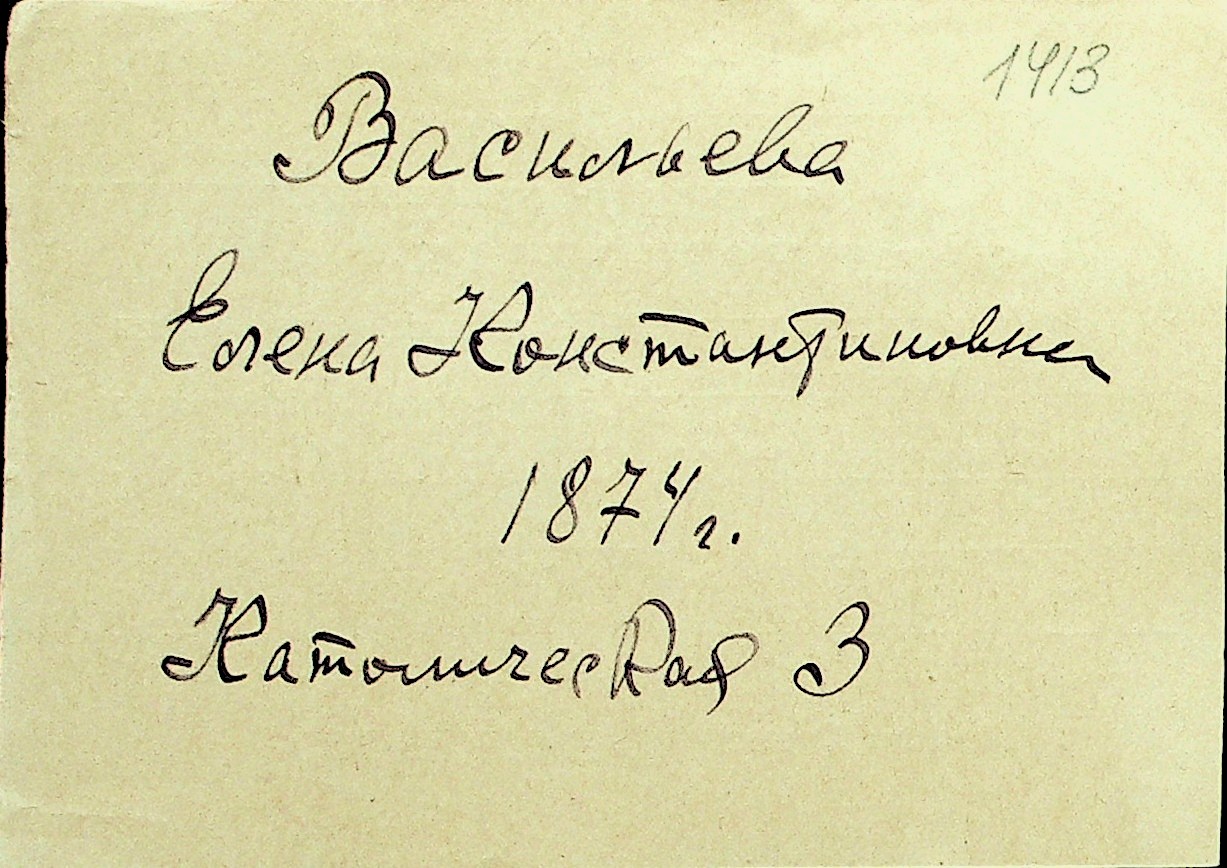 1413
Васильева
Елена Константиновна
1874г.
Католическая 3